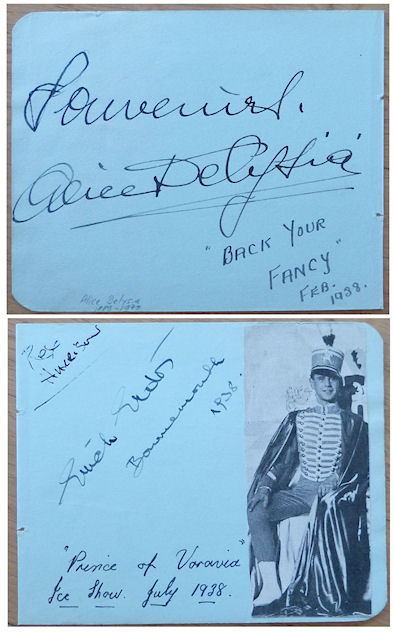 Souvenirs.
Alice Delysia
"BACK YOUR
FANCY"
FEB.
1938.
Alice Delysia
"Rex
HARRISON
Bournemouth
1938.
"Prince of Voravia"
Ice Show. July 1938.